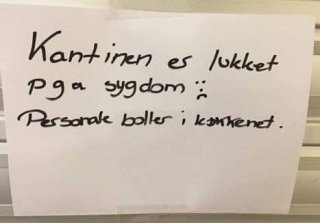 Kantinen er lukket
pga sygdom :(
Personale boller i køkkenet.